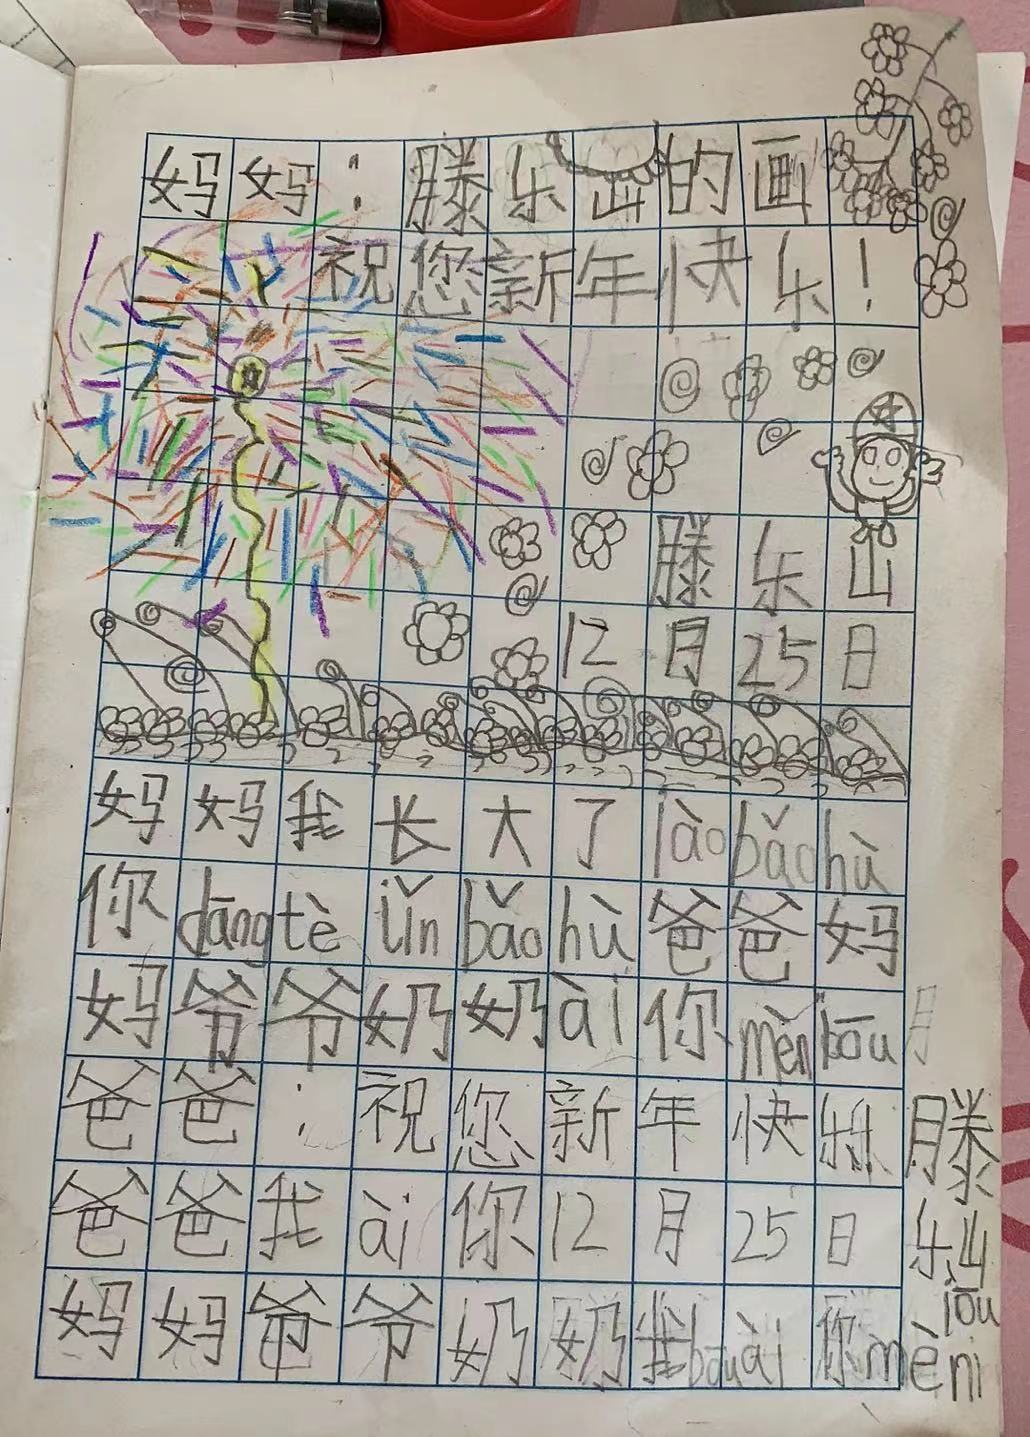 妈妈：滕乐山的画
祝您新年快乐！
滕乐山
12月25日
妈妈我长大了lào bǎo hù
你dāng tè iǐn bǎo hù爸爸妈
妈爷爷奶奶ài你mèn bōu
爸爸：祝您新年快乐
爸爸我ài你12月25日
妈妈爷爷奶奶我bōu ài你mèn
滕
乐山